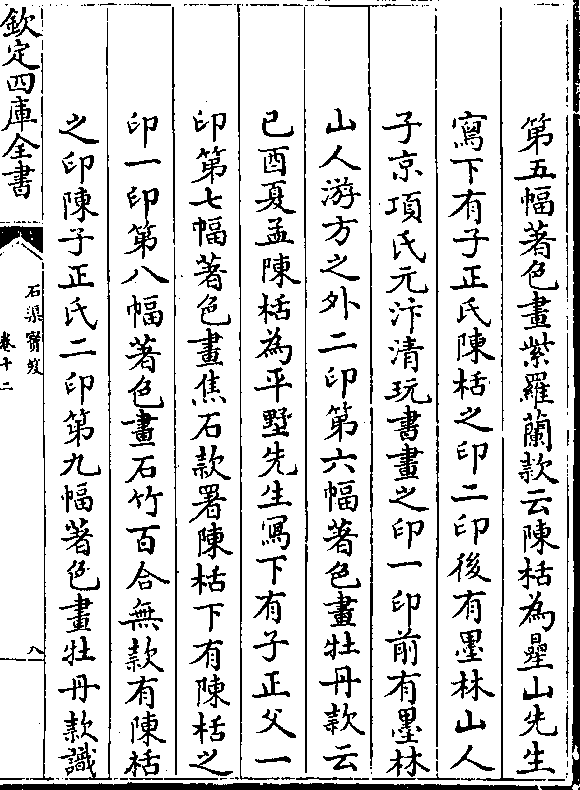 第五幅著色畫紫羅蘭款云陳栝為壘山先生
寫下有子正氏陳栝之印二印後有墨林山人
子京項氏元汴清玩書畫之印一印前有墨林
山人游方之外二印第六幅著色畫牡丹款云
己酉夏孟陳栝為平墅先生寫下有子正父一
印第七幅著色畫焦石款署陳栝下有陳栝之
印一印第八幅著色畫石竹百合無款有陳栝
之印陳子正氏二印第九幅著色畫牡丹款識
欽定四庫全書
石渠寶笈
卷十二
八